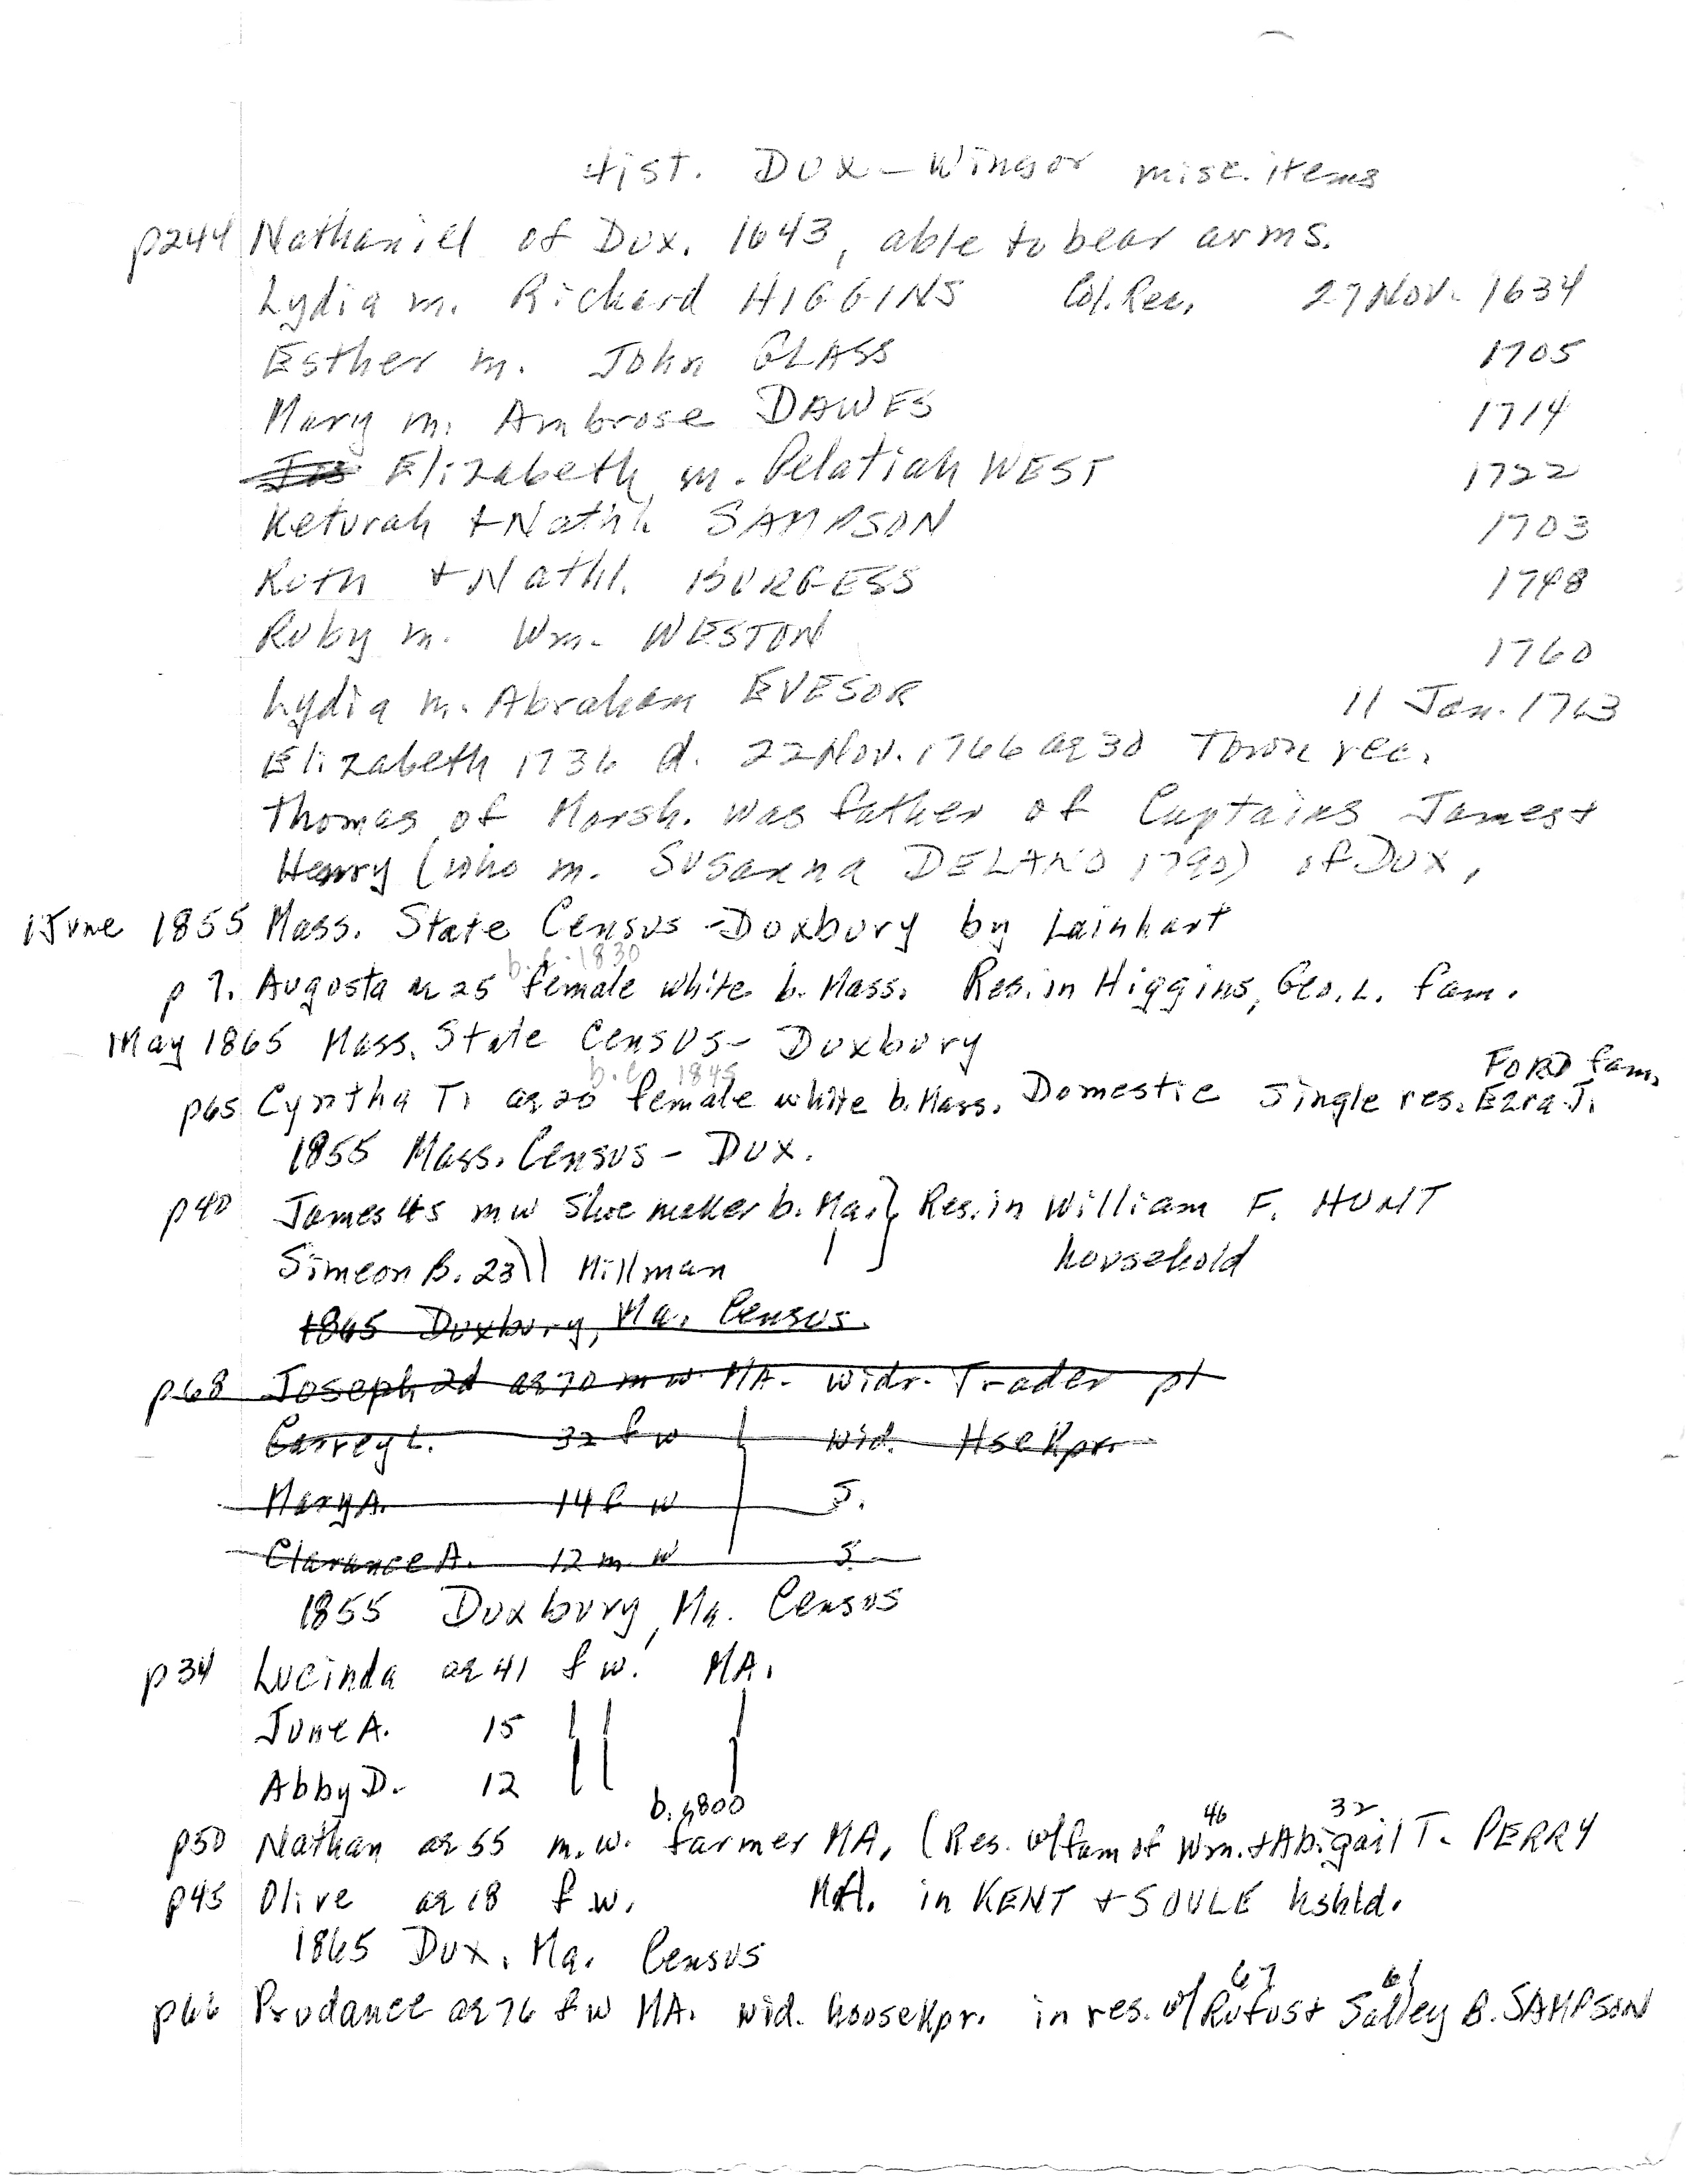 Hist. Dux-Winsor misc. items
p244 Nathaniel of Dux. 1643, able to bear arms.
Lydia m. Richard HIGGINS Col. Rec. 27 Nov. 1634
Esther m. John GLASS 1705
Mary m. Ambrose DAWES 1714
Jos Elizabeth m. Pelatiah WEST 1722
Keturah + Nathl. SAMPSON 1703
Ruth + Nathl. BURGESS 1748
Ruby m. Wm. WESTON 1760
Lydia m. Abraham EVESOR 11 Jan. 1763
Elizabeth 1736 d. 22 Nov. 1766 ae 30 Town rec.
Thomas of Marsh. was father of Captains James +
Henry (who m. Susanna DELANO 1790) of Dux.
1 June 1855 Mass. State Census - Duxbury by Lainhart
b.c. 1830
p 7. Augusta ae 25 female white b. Mass. Res. in Higgins, Geo. L. fam.
May 1865 Mass. State Census - Duxbury
b.c. 1845 FORD fam.
p65 Cyntha T. ae 20 female white b. Mass. Domestic Single res. Ezra J.
1855 Mass. Census - Dux.
p40 James 45 m w Shoemaker b. Ma. } Res. in William F. HUNT
Simeon B. 23 \\ Millman | household
1865 Duxbury, Ma. Census.
p68 Joseph 2d ae 70 m w MA. widr. Trader pl
Carrey L. 32 f w | wid. Hsekpr.
Mary A. 14 f w S.
Clarance A. 12 m w S.
1855 Duxbury, Ma. Census
p34 Lucinda ae 41 f w. MA.
June A. 15 | | |
Abby D. 12 | | |
b. c 1800 46 32
p50 Nathan ae 55 m. w. farmer MA. (Res. w/ fam of Wm. + Abigail T. PERRY
p45 Olive ae 18 f w. MA. in KENT + SOULE hshld.
1865 Dux. Ma. Census
67 61
p66 Prudance ae 76 f w MA. wid. housekpr. in res. w/ Rufus + Salley B. SAMPSON